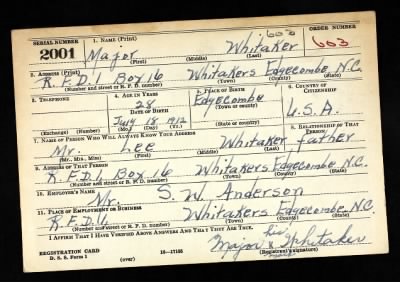 SERIAL NUMBER 1. NAME (Print) ORDER NUMBER
2001 Major Whitaker 603
(First) (Middle) (Last)
2. ADDRESS (Print)
R.F.D.1 Box 16 Whitakers Edgecombe N.C.
(Number and street or R. F. D. number) (Town) (County) (State)
3. TELEPHONE 4. AGE IN YEARS 5. PLACE OF BIRTH 6. COUNTRY OF CITIZENSHIP
28 Edgecombe
DATE OF BIRTH (Town or county)
July 18, 1912 U.S.A.
(Mo.) (Day) (Yr.) (State or country)
7. NAME OF PERSON WHO WILL ALWAYS KNOW YOUR ADDRESS 8. RELATIONSHIP OF THAT PERSON
Mr. Lee Whitaker father
(Mr., Mrs., Miss) (First) (Middle) (Last)
9. ADDRESS OF THAT PERSON
R.F.D.1 Box 16 Whitakers Edgecombe N.C.
(Number and street or R. F. D. number) (Town) (County) (State)
10. EMPLOYER'S NAME
Mr. S. W. Anderson
11. PLACE OF EMPLOYMENT OR BUSINESS
R.F.D.1 Whitakers Edgecombe N.C.
(Number and street or R. F. D. number) (Town) (County) (State)
I AFFIRM THAT I HAVE VERIFIED ABOVE ANSWERS AND THAT THEY ARE TRUE.
his
Major x Whitaker
REGISTRATION CARD
D. S. S. Form 1 (over) 16—17105 (Registrant's signature)
mark